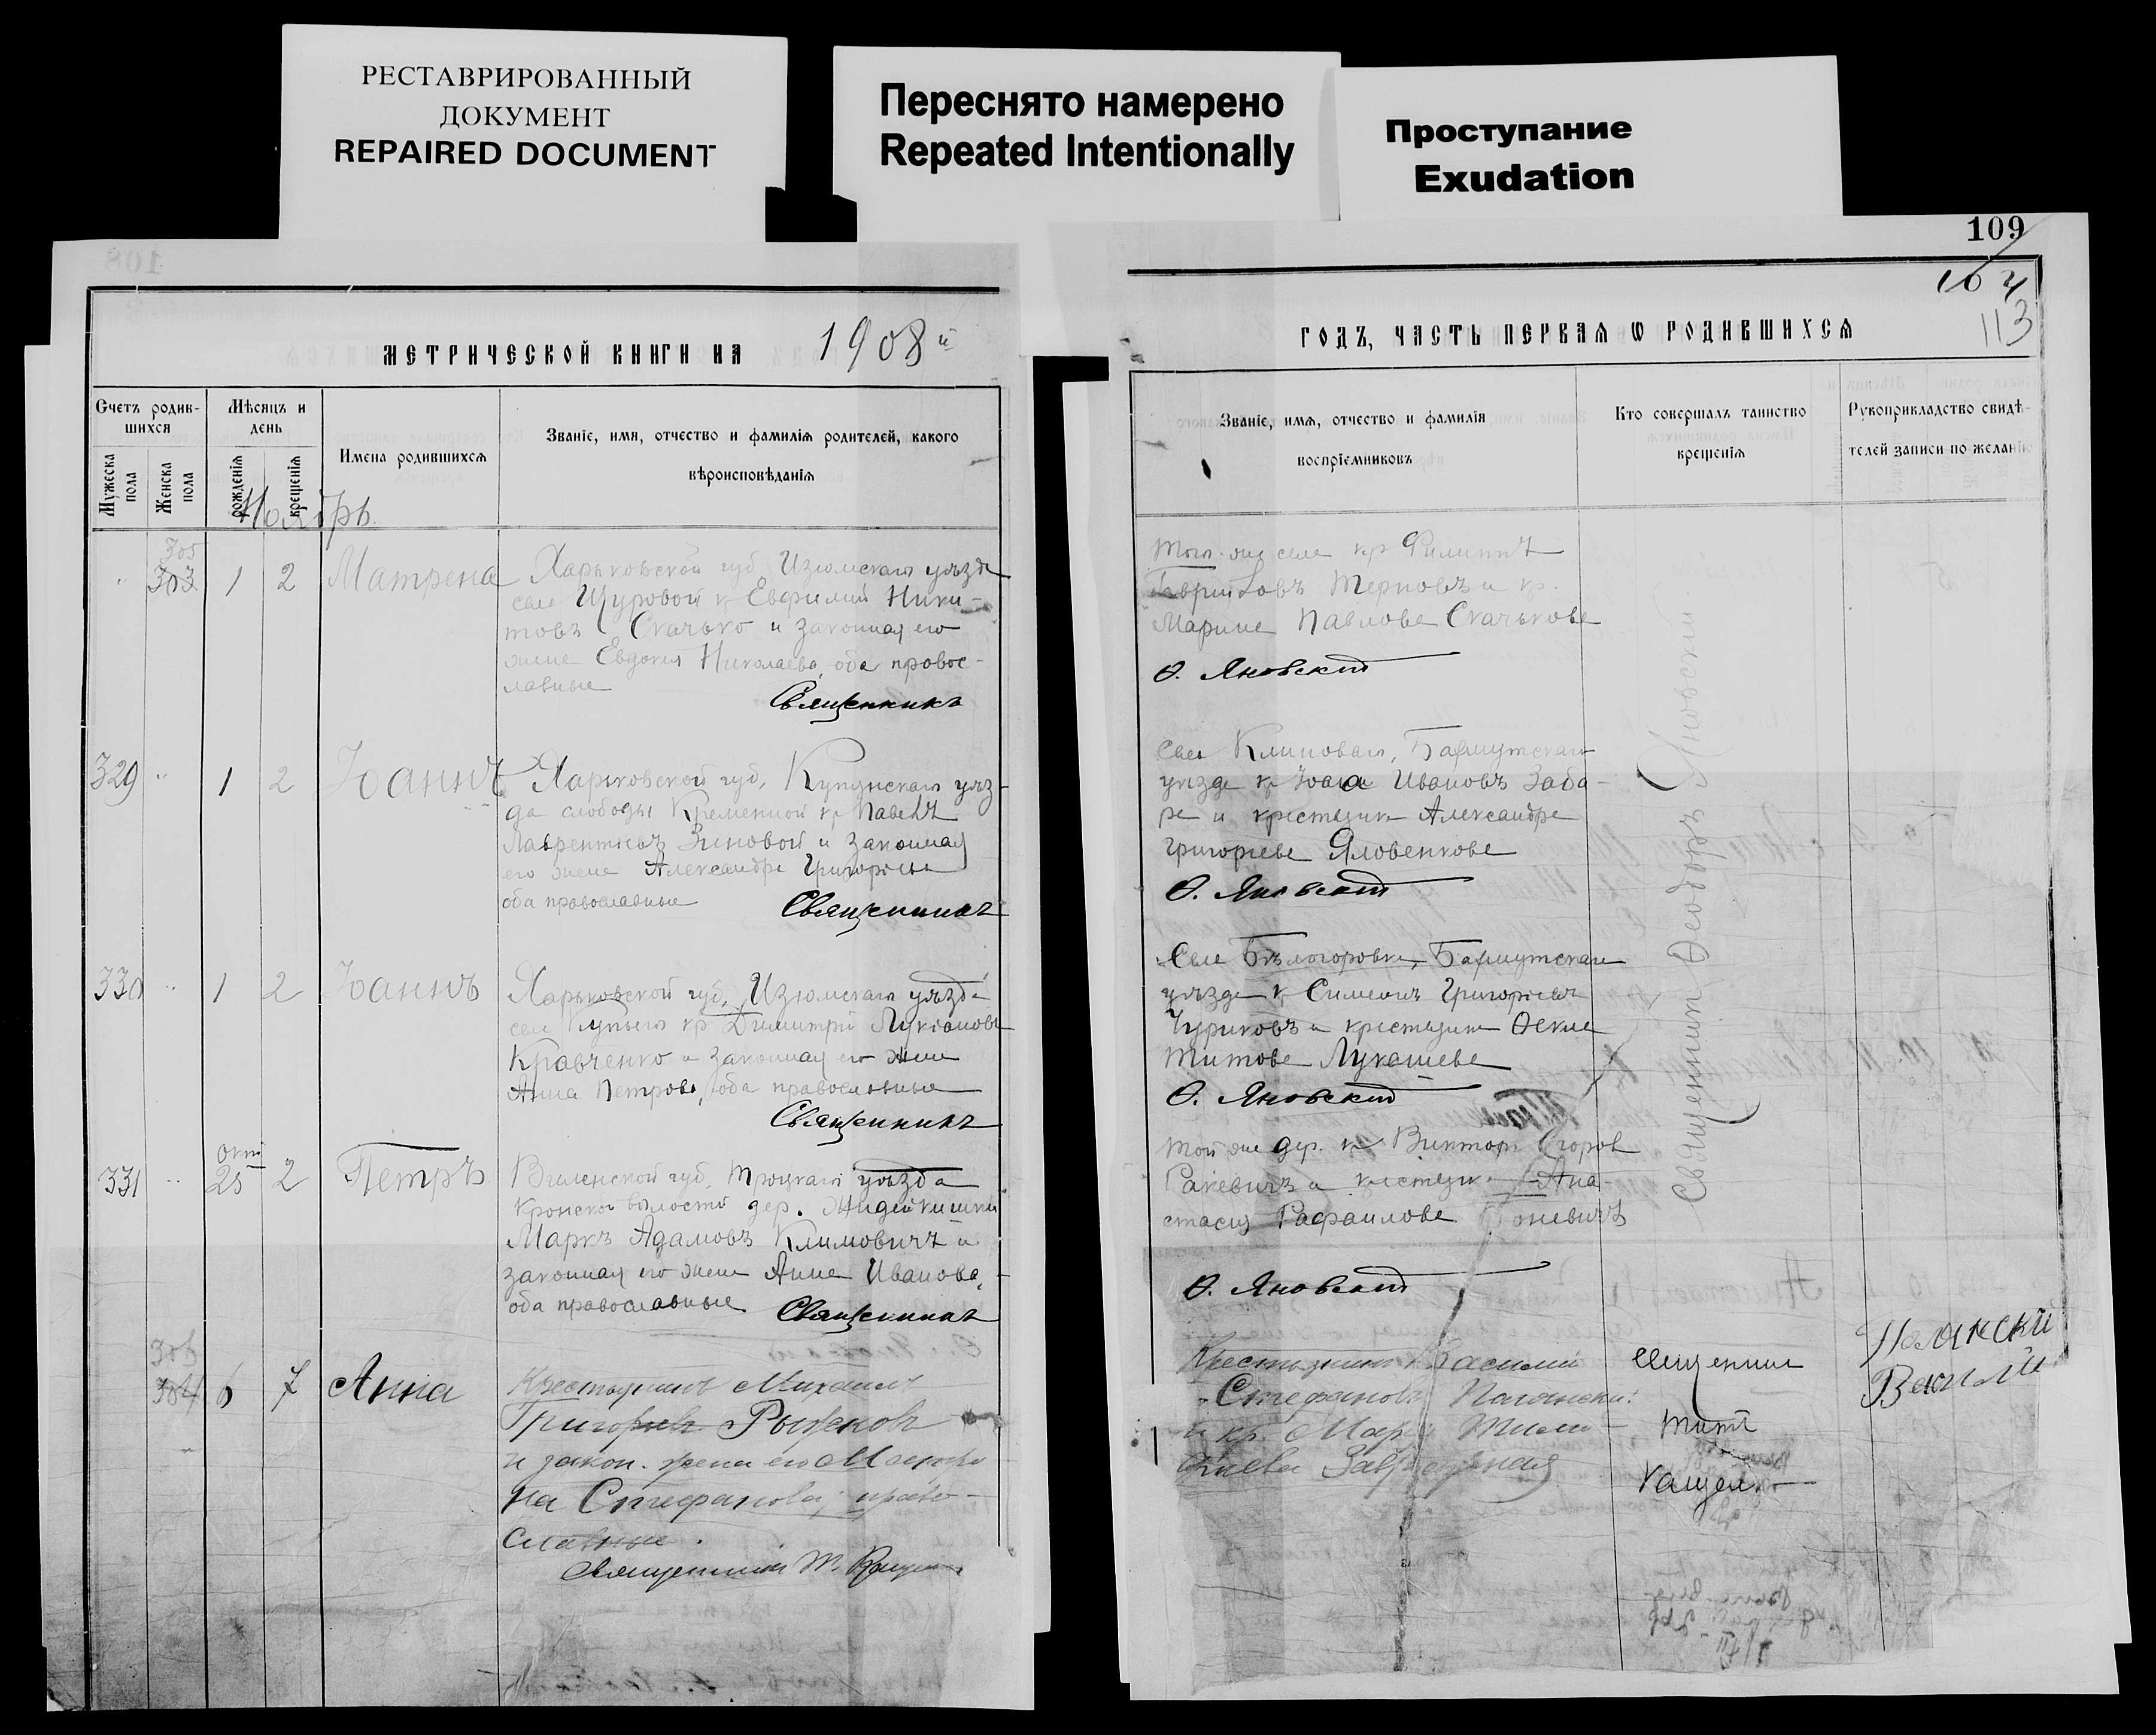 РЕСТАВРИРОВАННЫЙ
ДОКУМЕНТ
REPAIRED DOCUMENT
Переснято намерено
Repeated Intentionally
Проступание
Exudation
МЕТРИЧЕСКОЙ КНИГИ НА 1908 й
Счетъ родив-
шихся
Мужеска пола
Женска пола
Мѣсяцъ и
день
рожденія
крещенія
Имена родившихся
Званіе, имя, отчество и фамилія родителей, какого
вѣроисповѣданія
Ноябрь
305
303 1 2 Матрена
Харьковской губ. Изюмскаго уѣзда
села Щуровой кр Евфимий Ники-
товъ Скачько и законная его
жена Евдокия Николаева, оба правос-
лавные
Священникъ
329 " 1 2 Іоаннъ
Харьковской губ. Купянскаго уѣз-
да слободы Кременной кр Павелъ
Лаврентіевъ Зиновой и законная
его жена Александра Григорьева
оба православные
Священникъ
330 " 1 2 Іоаннъ
Харьковской губ. Изюмскаго уѣзда
села кр Димитрій Лукіановъ
Кравченко и законная его жена
Анна Петрова, оба православные
Священникъ
331 " окт 25 2 Петръ
Виленской губ. Троцкаго уѣзда
Кронской волости дер. Жидейкишки
Маркъ Адамовъ Климовичъ и
законная его жена Анна Иванова,
оба православные Священникъ
306
304 6 7 Анна
Крестьянинъ Михаилъ
Григорьевъ Рыженовъ
и закон. жена его Матро
на Стефанова, право-
славные.
Священникъ Т.
109
104
113
ГОДЪ, ЧАСТЬ ПЕРВАЯ Ѡ РОДИВШИХСЯ
Званіе, имя, отчество и фамилія
воспріемниковъ
Кто совершалъ таинство
крещенія
Рукоприкладство свидѣ-
телей записи по желанію
Того-же села кр Филиппъ
Терновъ и кр.
Марина Павлова Скачькова
Ѳ. Яновскій
Села Клиноваго, Бахмутскаго
уѣзда кр Іоанъ Ивановъ Заба-
ра и крестьянка Александра
Григорьева Яловенкова
Ѳ. Яновскій
Села Бѣлогоровки, Бахмутскаго
уѣзда кр Симеонъ Григорьевъ
Чуриковъ и крестьянка Ѳекла
Титова Лукашева
Ѳ. Яновскій
Той же дер. кр Викторъ Егоровъ
Ракевичъ и крестьянка Ана-
стасия Рафаилова
Ѳ. Яновскій
Священникъ Ѳеодоръ Яновскій
Крестьянинъ Василій
Стефановъ Полянскій
и кр. Марія Тимо-
Священникъ
Титъ
Полянскій
Василій